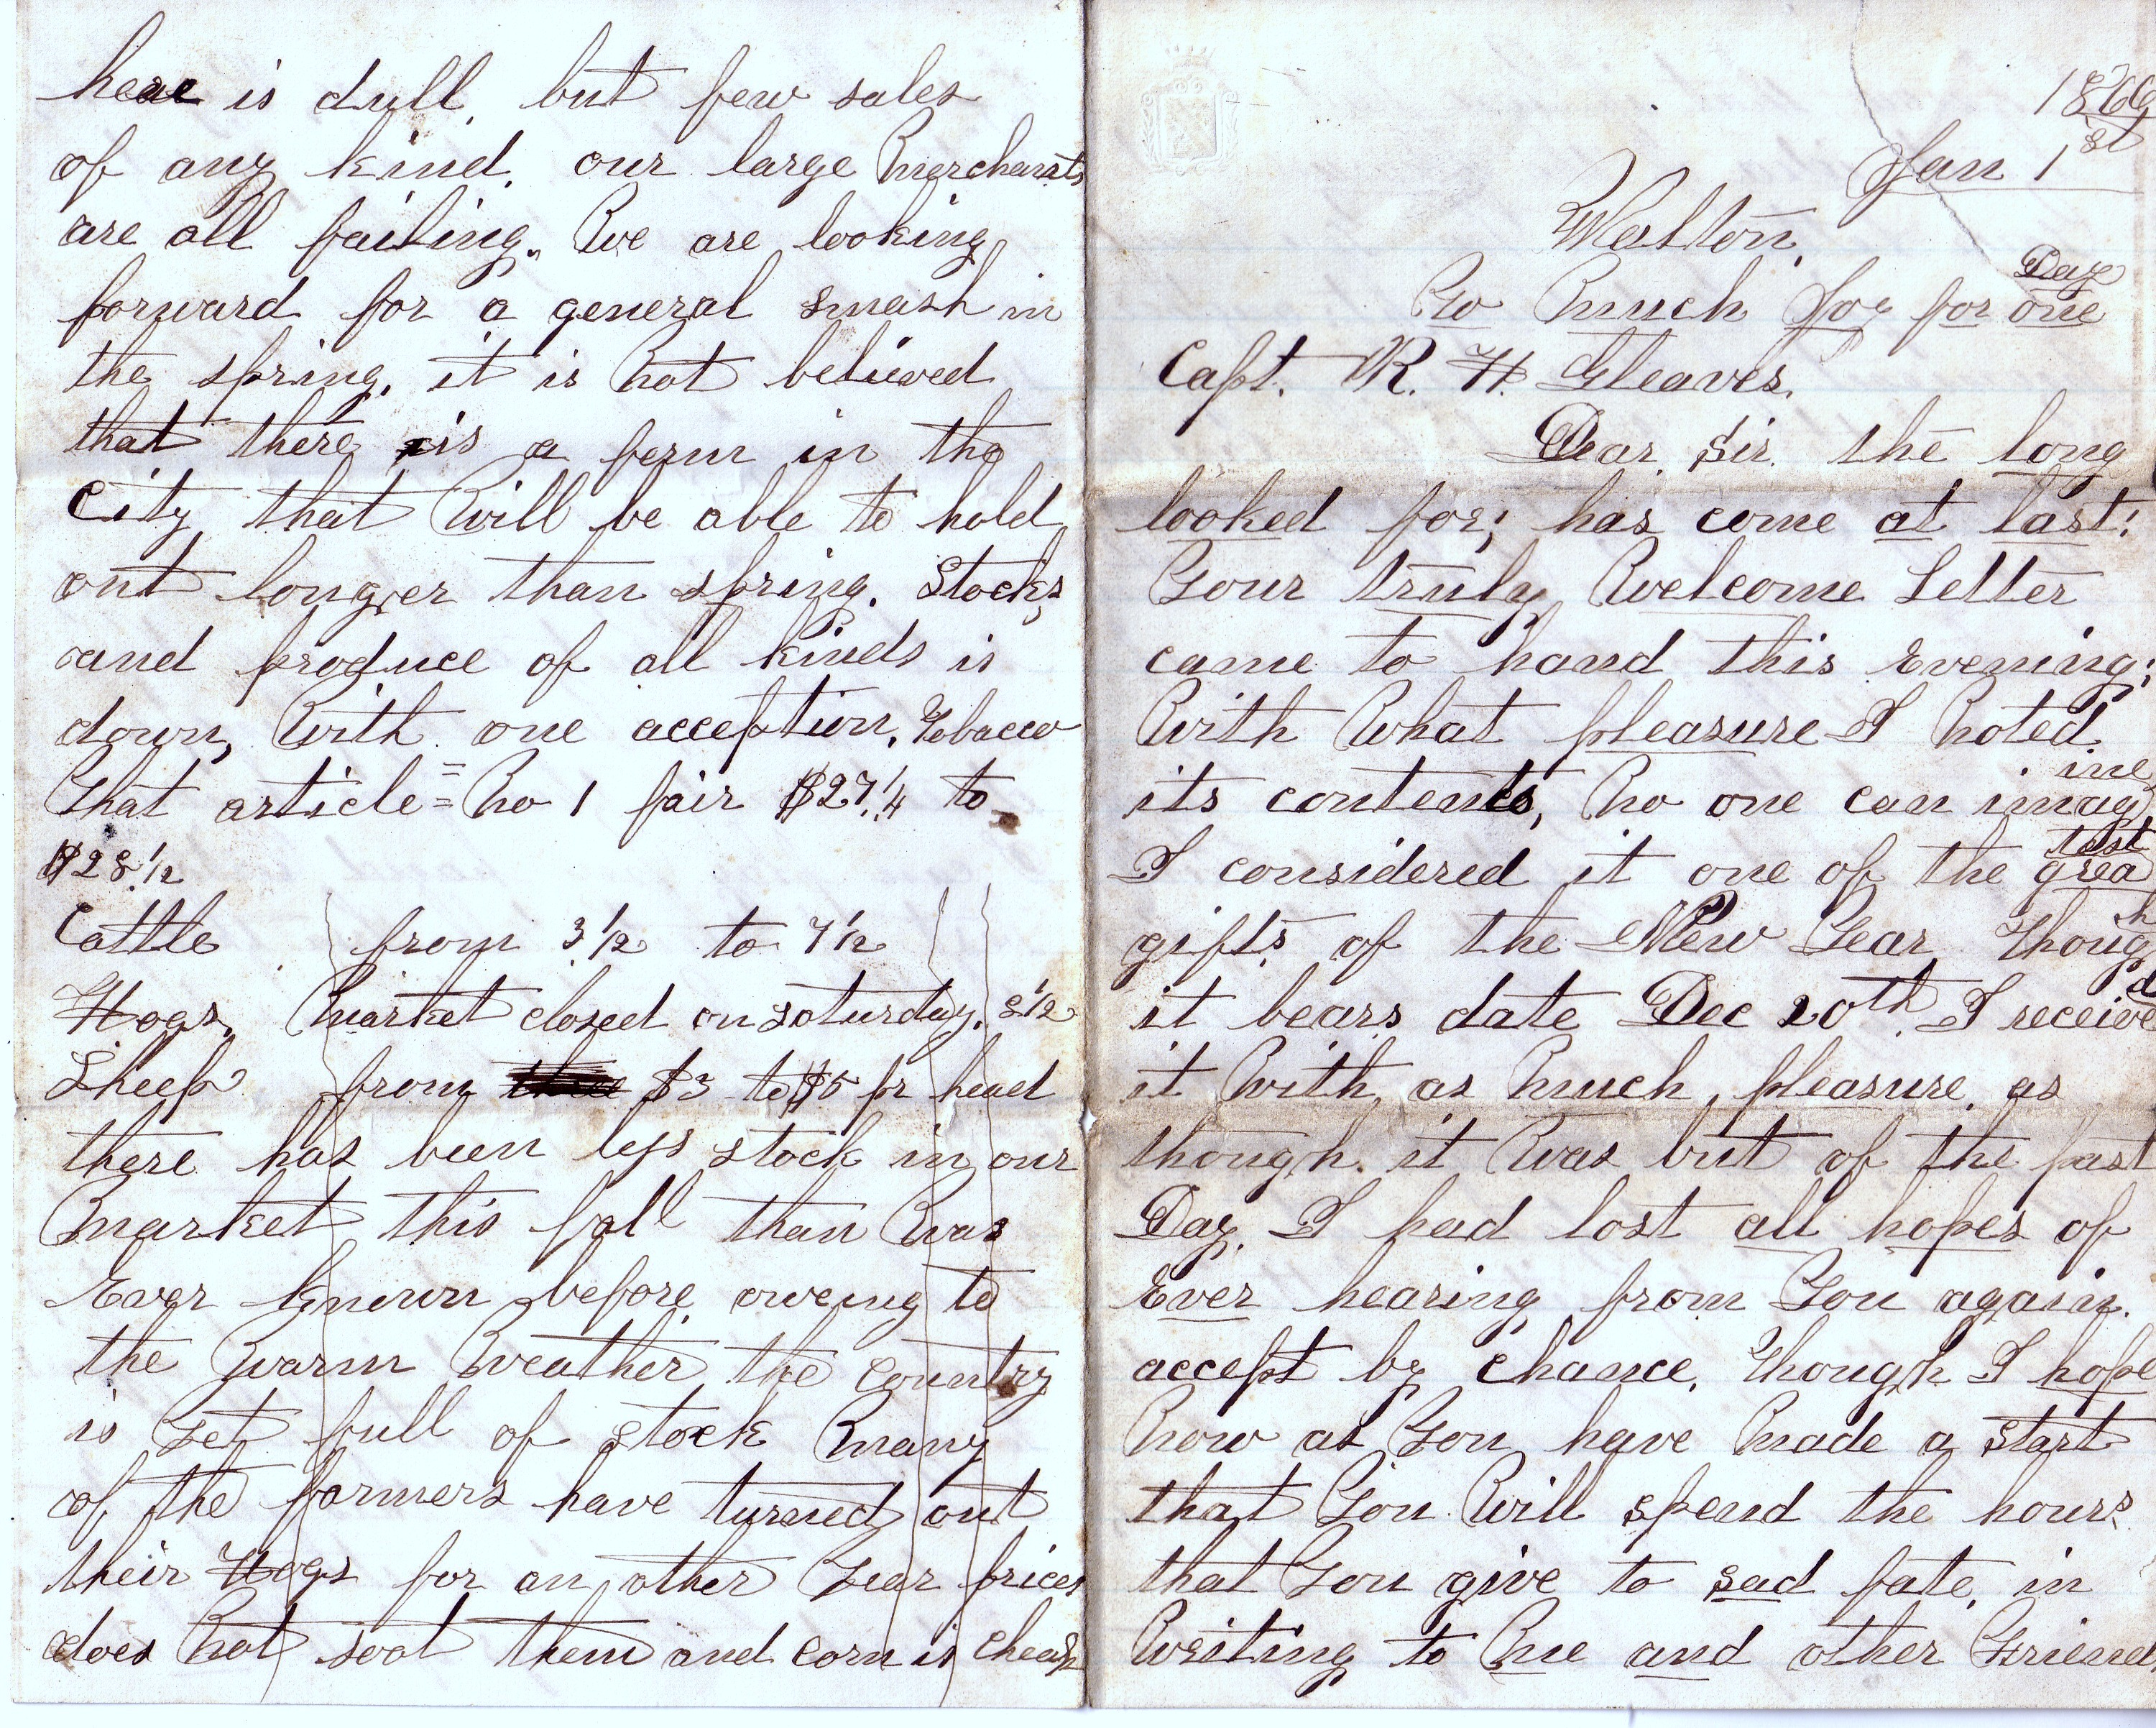 here is dull, but few sales
of any kind. our large Merchants
are all failing. We are looking
forward for a general smash in
the spring. it is Not believed
that there is a ferm in the
City that Will be able to hold
out longer than spring. Stocks,
and produce of all kinds is
down, With one acception. Tobacco
That article = No 1 fair $27.1/4 to
$28.1/2
Cattle from 3 1/2 to 7 1/2
Hogs. Market closed on Saturday. 8 1/2
Sheep from three $3 to $5 pr head
there has been less stock in our
Market this fall than Was
Ever known before oweing to
the Warm Weather the Country
is yet full of stock Many
of the farmers have turned out
their Hogs for an other Year prices
does Not soot them and corn is cheap
1866
Jan 1st
Walton.
So Much Joy for one Day
Capt. R. H. Gleaves.
Dear Sir. the long
looked for; has come at last!
Your truly Welcome Letter
came to hand this Evening;
With What pleasure I Noted
its contents, No one can imagine
I considered it one of the greatest
gifts of the New Year Though
it bears date Dec 20th. I received
it With as Much pleasure as
though it Was but of the past
Day. I had lost all hopes of
Ever hearing from You again.
accept by Chance. Though I hope
Now as You have Made a start
that You Will spend the hours
that You give to sad fate, in
Writing to Me and other Friend